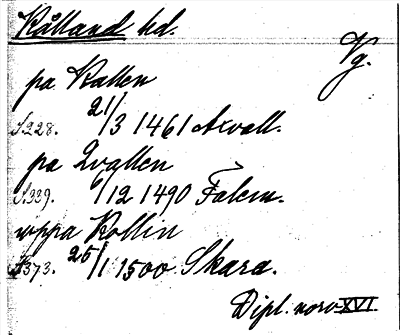 Kålland hd.
Vg.
pa Kallen
S.228. 21/3 1461 Axvall.
pa Qvallen
S.339. 6/12 1490 Falem.
uppa Kollin
S.373. 25/1 1500 Skara.
Dipl. norv. XVI